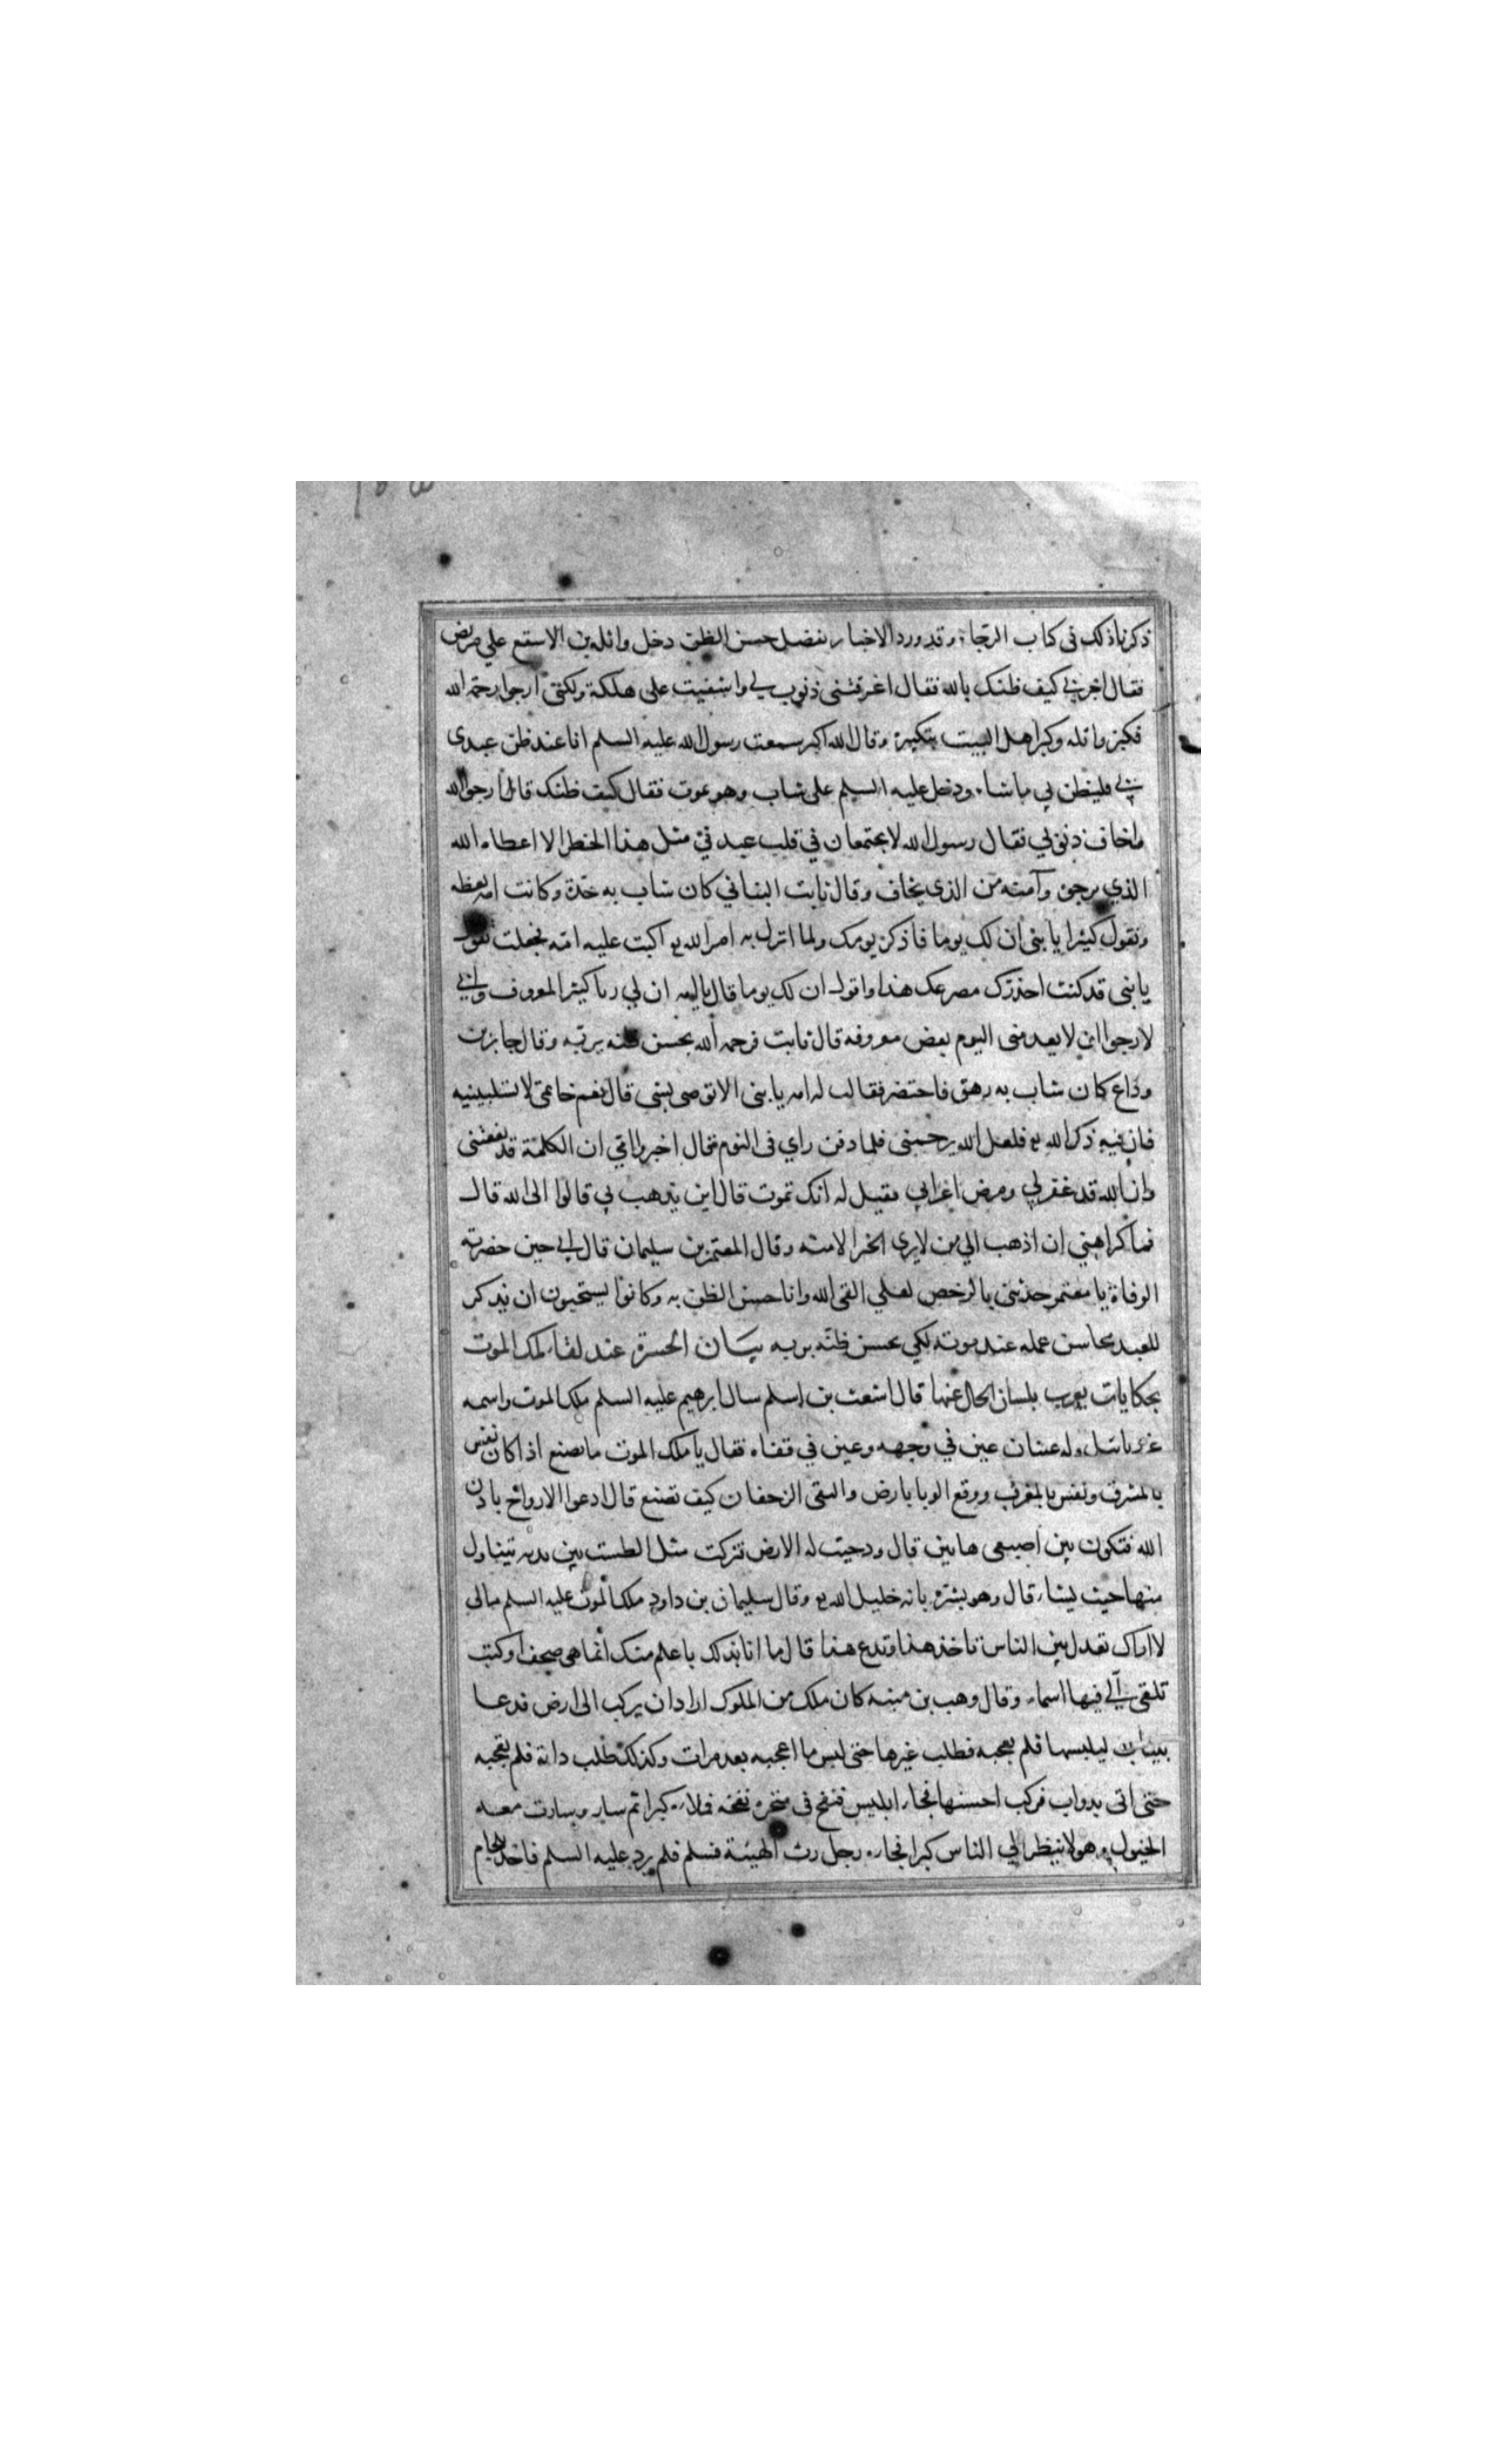 ذكرنا ذلك في كتاب الرجاء وقد ورد الاخبار بفضل حسن الظن دخل واثلة بن الاسقع علي مريض
فقال اخبرني كيف ظنك بالله فقال اغرقتني ذنوب لي واشفيت على هلكة ولكني ارجوا رحمة الله
فكبر واثله وكبر اهل البيت بتكبيره وقال الله اكبر سمعت رسول الله عليه السلم انا عند ظن عبدى
بي فليظن بي ما شاء ودخل عليه السلم على شاب وهو يموت فقال كيف ظنك قال ارجو الله
واخاف ذنوبي فقال رسول الله لا يجتمعان في قلب عبد في مثل هذا الخطر الا اعطاه الله
الذي يرجو وآمنه من الذى يخاف وقال ثابت البناني كان شاب به حدة وكانت امه تعظه
وتقول كثيرا يا بنى ان لك يوما فاذكر يومك ولما انزل به امر الله تع اكبت عليه امه فجعلت تقول
يا بنى قد كنت احذرك مصرعك هذا واقول ان لك يوما قال يا امه ان لي ربا كثير المعروف واني
لارجوا ان لا يعدمنى اليوم بعض معروفه قال ثابت فرحمه الله بحسن ظنه بربه وقال جابر بن
وداع كان شاب به رهق فاحتضر فقالت له امه يا بنى الا توصى بشى قال نعم خاتمى لا تسلبينيه
فان فيه ذكر الله تع فلعل الله يرحمنى فلما دفن راي فى النوم فقال اخبروا امي ان الكلمة قد نفعتنى
وان الله قد غفر لي ومرض اعرابي فقيل له انك تموت قال اين يذهب بي قالوا الى الله قال
فما كراهتي ان اذهب الي من لا يرى الخير الا منه وقال المعتمر بن سليمان قال ابي حين حضرته
الوفاة يا معتمر حدثنى بالرخص لعلي القى الله وانا حسن الظن به وكانوا يستحبون ان يذكر
للعبد محاسن عمله عند موته لكي يحسن ظنه بربه بيان الحسرة عند لقاء ملك الموت
بحكايات يعرب بلسان الحال عنها قال اشعث بن اسلم سال ابرهيم عليه السلم ملك الموت واسمه
عزرائيل وله عينان عين في وجهه وعين في قفاه فقال يا ملك الموت ما تصنع اذا كان نفس
بالمشرق ونفس بالمغرب ووقع الوبا بارض والتقى الزحفان كيف تصنع قال ادعوا الارواح باذن
الله فتكون بين اصبعى هاتين قال ودحيت له الارض فتركت مثل الطست بين يديه يتناول
منها حيث يشاء قال وهو يبشره بانه خليل الله تع وقال سليمان بن داود ملك الموت عليه السلم مالي
لا اراك تعدل بين الناس تاخذ هذا وتدع هذا قال ما انا بذلك باعلم منك انما هى صحف او كتب
تلقى الي فيها اسماء وقال وهب بن منبه كان ملك من الملوك اراد ان يركب الى ارض فدعا
بثياب ليلبسها فلم يعجبه فطلب غيرها حتى لبس ما اعجبه بعد مرات وكذلك طلب دابة فلم يعجبه
حتى اتى بدواب فركب احسنها فجاء ابليس فنفخ فى منخره نفخه فملاءه كبرا ثم سار وسارت معه
الخيول وهو لا ينظر الي الناس كبرا فجاءه رجل رث الهيئة فسلم فلم يرد عليه السلم فاخذ بلجام